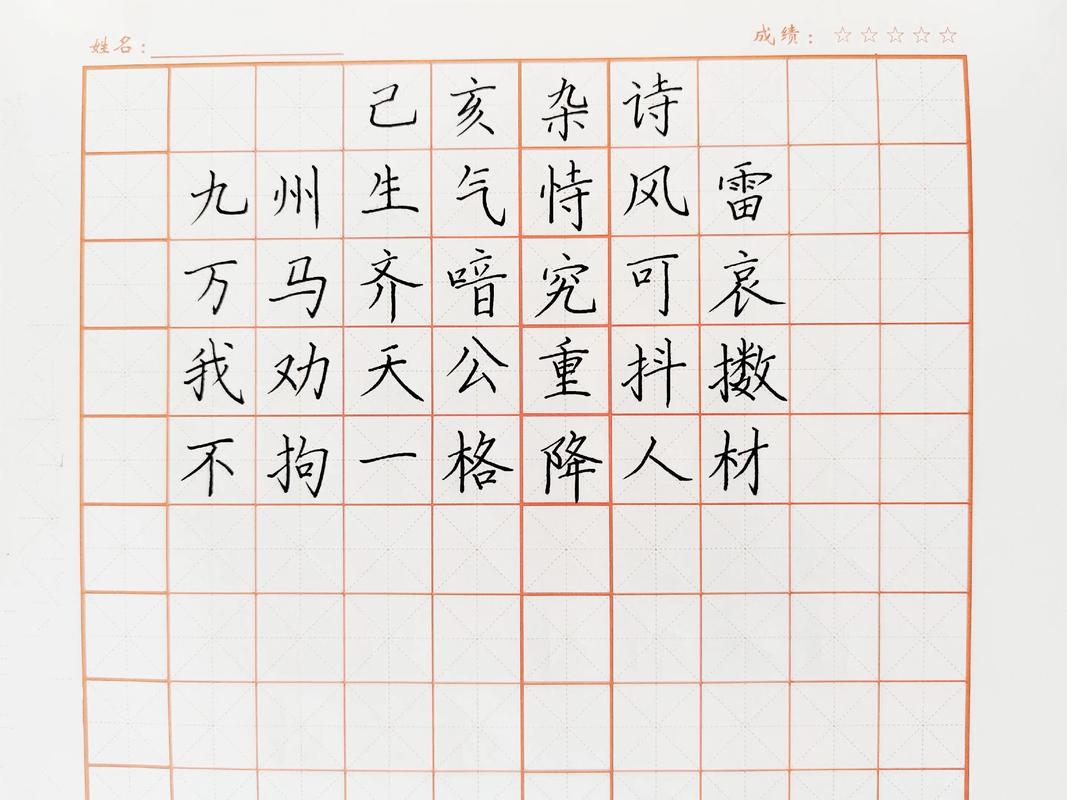 姓名： 成绩：☆☆☆☆☆
己亥杂诗
九州生气恃风雷
万马齐喑究可哀
我劝天公重抖擞
不拘一格降人材